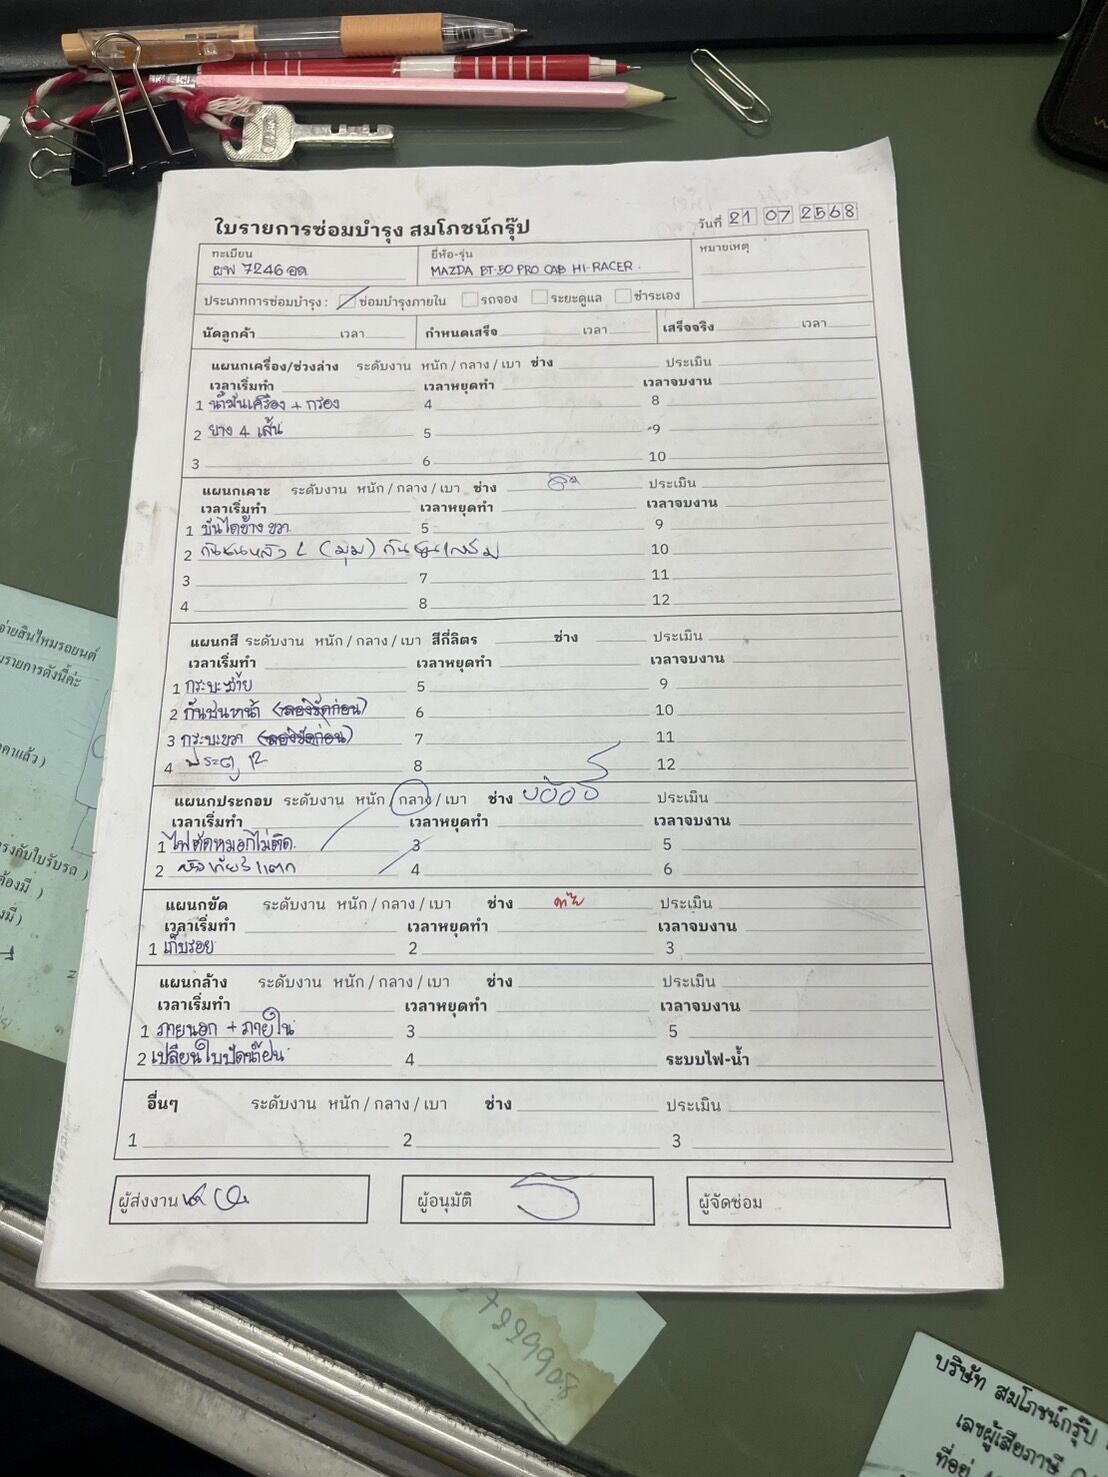 ใบรายการซ่อมบำรุง สมโภชน์กรุ๊ป
วันที่ 21 07 2568
ทะเบียน ยี่ห้อ-รุ่น หมายเหตุ
ผฬ 7246 อด MAZDA BT-50 PRO CAB HI-RACER
ประเภทการซ่อมบำรุง : ซ่อมบำรุงภายใน รถจอง ระยะดูแล ชำระเอง
นัดลูกค้า เวลา กำหนดเสร็จ เวลา เสร็จจริง เวลา
แผนกเครื่อง/ช่วงล่าง ระดับงาน หนัก / กลาง / เบา ช่าง ประเมิน
เวลาเริ่มทำ เวลาหยุดทำ เวลาจบงาน
1 น้ำมันเครื่อง + กรอง 4 8
2 ยาง 4 เส้น 5 9
3 6 10
แผนกเคาะ ระดับงาน หนัก / กลาง / เบา ช่าง ประเมิน
เวลาเริ่มทำ เวลาหยุดทำ เวลาจบงาน
1 บันไดข้าง ขวา 5 9
2 กันชนหลัง L (มุม) 10
3 7 11
4 8 12
แผนกสี ระดับงาน หนัก / กลาง / เบา สีกี่ลิตร ช่าง ประเมิน
เวลาเริ่มทำ เวลาหยุดทำ เวลาจบงาน
1 กระบะซ้าย 5 9
2 กันชนหน้า (ลองขัดก่อน) 6 10
3 กระบะขวา (ลองขัดก่อน) 7 11
4 ประตู 8 12
แผนกประกอบ ระดับงาน หนัก / กลาง / เบา ช่าง ประเมิน
เวลาเริ่มทำ เวลาหยุดทำ เวลาจบงาน
1 ไฟตัดหมอกไม่ติด 3 5
2 แตก 4 6
แผนกขัด ระดับงาน หนัก / กลาง / เบา ช่าง ประเมิน
เวลาเริ่มทำ เวลาหยุดทำ เวลาจบงาน
1 เก็บรอย 2 3
แผนกล้าง ระดับงาน หนัก / กลาง / เบา ช่าง ประเมิน
เวลาเริ่มทำ เวลาหยุดทำ เวลาจบงาน
1 ภายนอก + ภายใน 3 5
2 เปลี่ยนใบปัดน้ำฝน 4 ระบบไฟ-น้ำ
อื่นๆ ระดับงาน หนัก / กลาง / เบา ช่าง ประเมิน
1 2 3
ผู้ส่งงาน ผู้อนุมัติ ผู้จัดซ่อม
จ่ายสินไหมรถยนต์
รายการดังนี้ค่ะ
แล้ว )
รงกับใบรับรถ )
ต้องมี )
บริษัท สมโภชน์กรุ๊ป
เลขผู้เสียภาษี
ที่อยู่